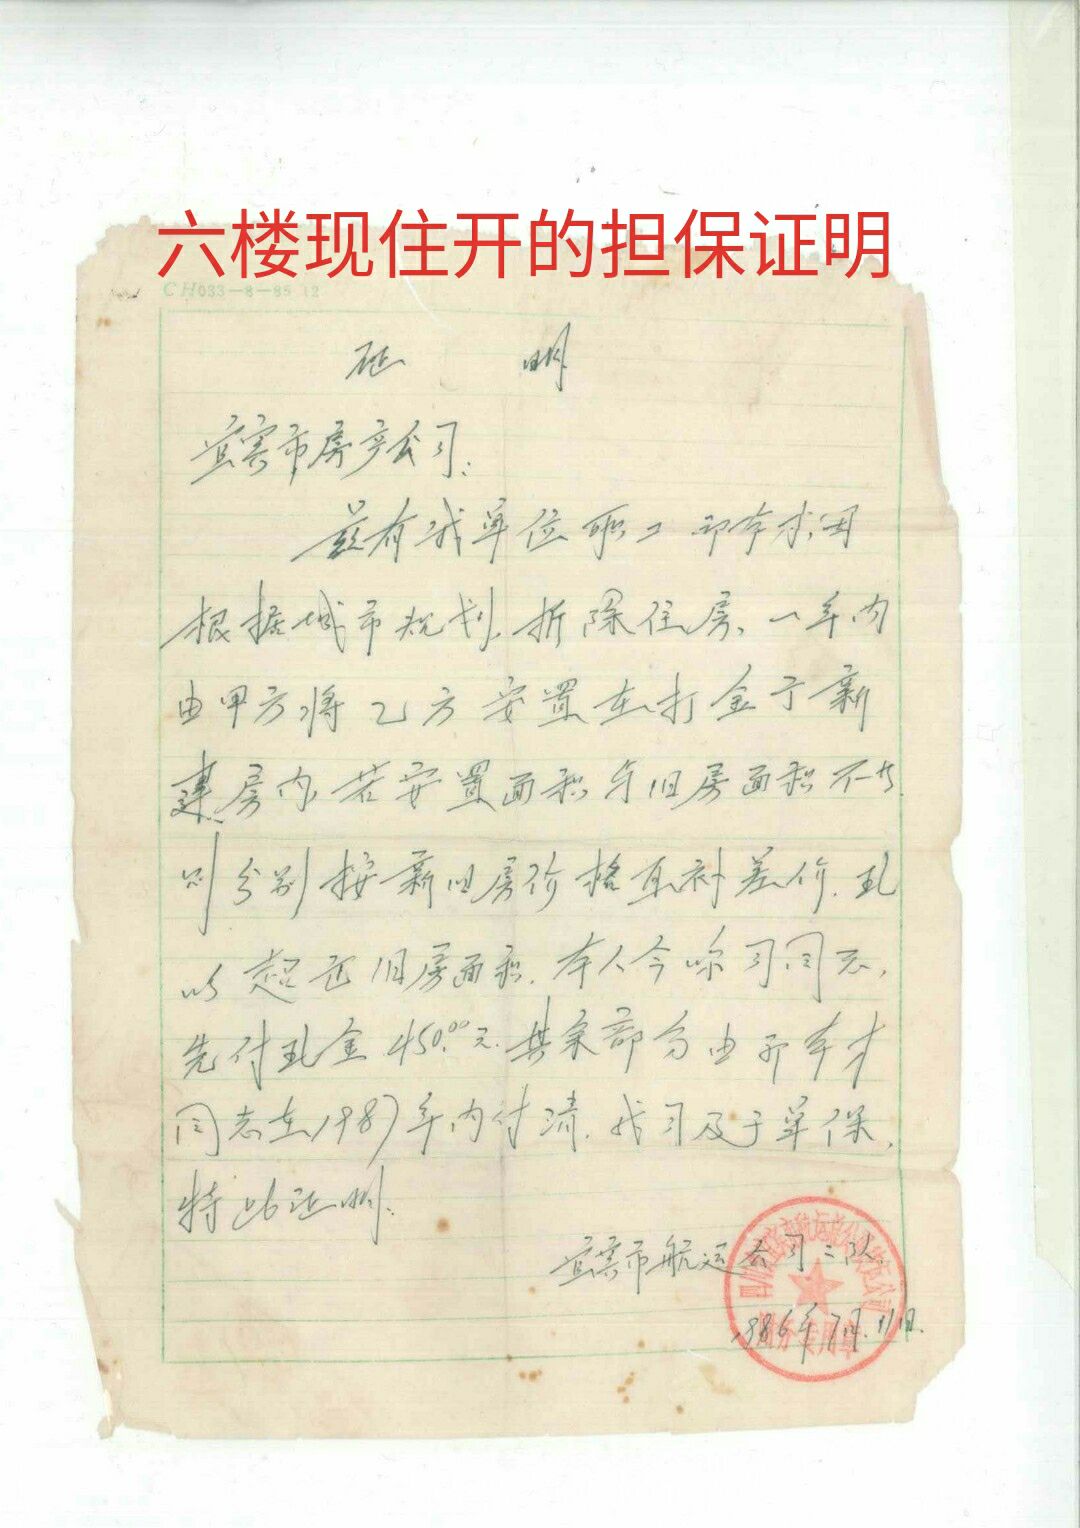 六楼现住开的担保证明
CH033-8-85 12
证 明
宜宾市房产公司:
兹有我单位职工 邓本才 因
根据城市规划,折除住房、一年内
由甲方将乙方安置在打金于新
建房内,若安置面积与旧房面积不
则分别按新旧房价格互补差价.
以超过旧房面积.本人今 司同志,
先付 金450.00元.其余部分由 本才
同志在1987年内付清.我司 于单保,
特此证明.
宜宾市航运公司二队
1986年7月11日.